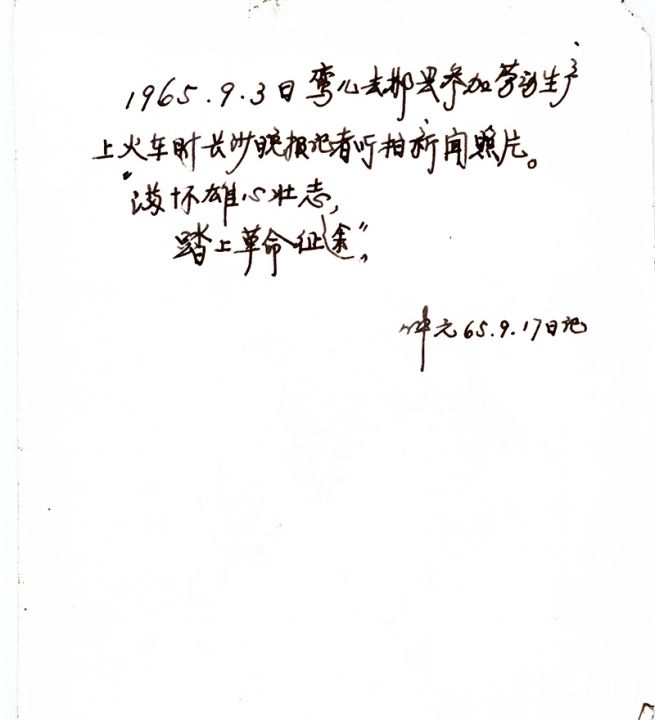 1965.9.3日 儿去郴县参加劳动生产
上火车时长沙晚报记者所拍新闻照片。
“满怀雄心壮志,
踏上革命征途”,
元 65.9.17日记